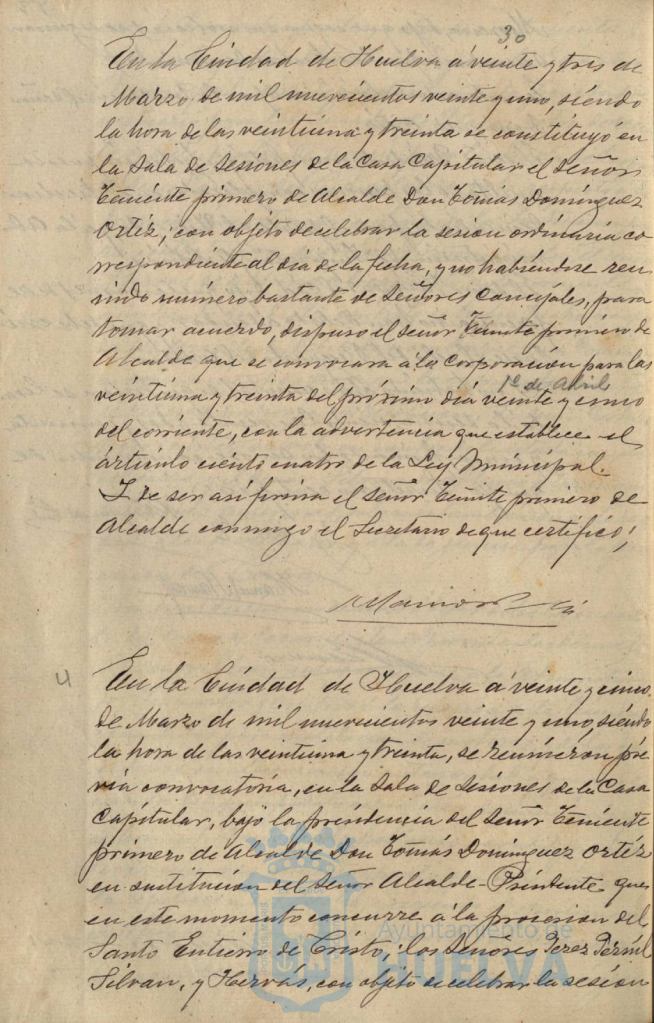 30
En la Ciudad de Huelva á veinte y tres de
Marzo de mil nuevecientos veinte y uno, siendo
la hora de las veintiuna y treinta se constituyó en
la Sala de Sesiones de la Casa Capitular el Señor
Teniente primero de Alcalde Don Tomás Domínguez
Ortíz, con objeto de celebrar la sesion ordinaria co
rrespondiente al dia de la fecha, y no habiéndose reu
nido número bastante de Señores Concejales, para
tomar acuerdo, dispuso el señor Teniente primero de
Alcalde que se convocara á la Corporación para las
1º de Abril
veintiuna y treinta del próximo dia veinte y cinco
del corriente, con la advertencia que establece el
artículo ciento cuatro de la Ley Municipal.
Y de ser así firma el señor Tente primero de
Alcalde conmigo el Secretario de que certifico;
4
En la Ciudad de Huelva á veinte y cinco
de Marzo de mil nuevecientos veinte y uno, siendo
la hora de las veintiuna y treinta, se reunieron pré
via convocatoria, en la Sala de Sesiones de la Casa
Capitular, bajo la presidencia del Señor Teniente
primero de Alcalde Don Tomás Domínguez Ortíz
en sustitución del Señor Alcalde Presidente que
en este momento concurre á la procesion del
Santo Entierro de Cristo; los Señores Perez
Silvan, y Hervás, con objeto de celebrar la sesión
Ayuntamiento de
HUELVA